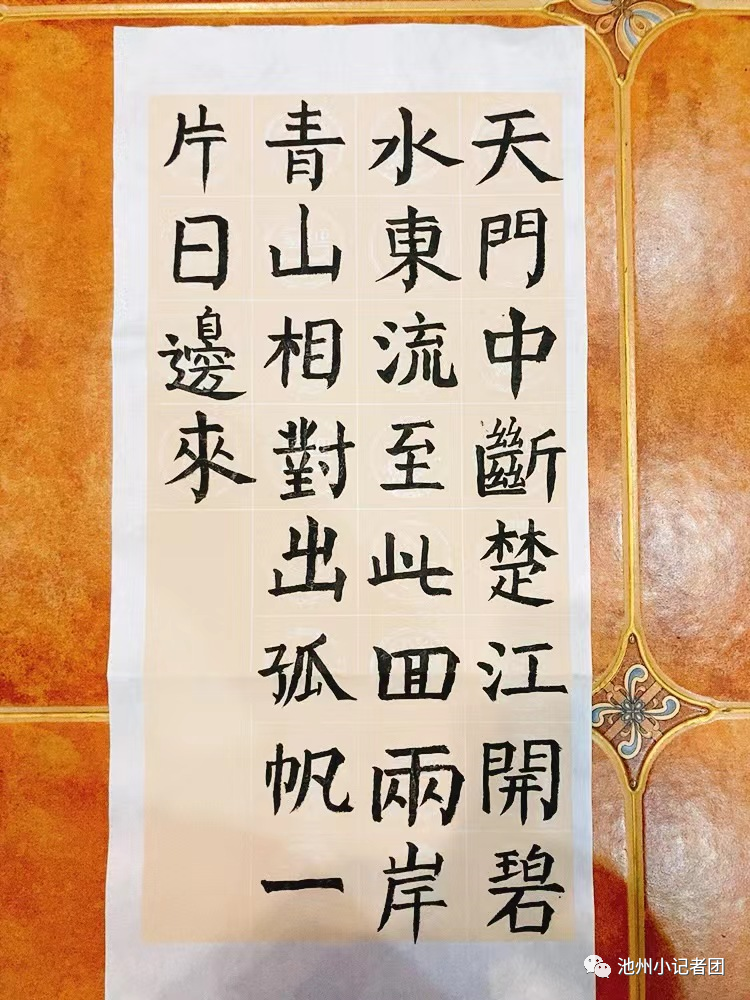 天門中斷楚江開碧
水東流至此回兩岸
青山相對出孤帆一
片日邊來
池州小记者团